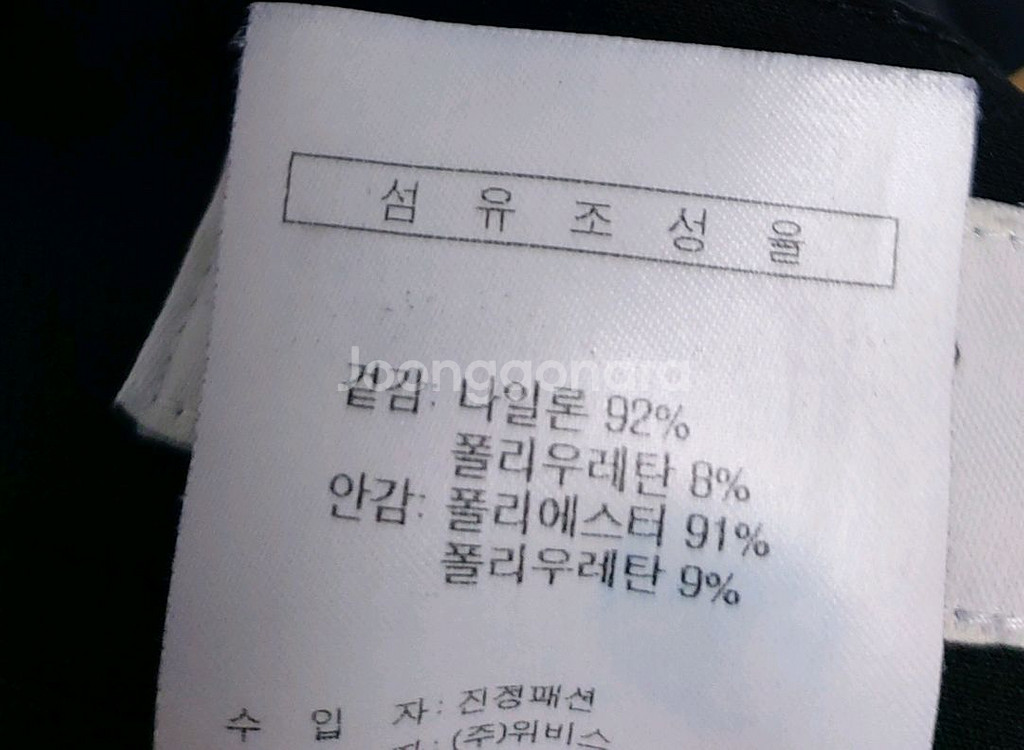 섬 유 조 성 율
Joonggonara
겉감: 나일론 92%
폴리우레탄 8%
안감: 폴리에스터 91%
폴리우레탄 9%
수 입 자: 진정패션
(주)위비스